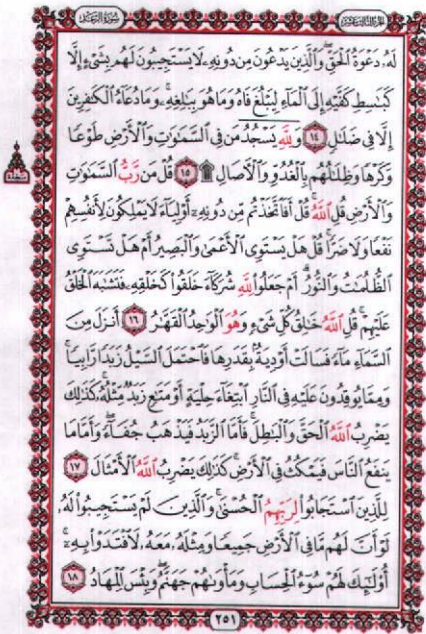 الجزء الثالث عشر
سورة الرعد
لَهُۥ دَعْوَةُ ٱلْحَقِّ ۖ وَٱلَّذِينَ يَدْعُونَ مِن دُونِهِۦ لَا يَسْتَجِيبُونَ لَهُم بِشَىْءٍ إِلَّا
كَبَـٰسِطِ كَفَّيْهِ إِلَى ٱلْمَآءِ لِيَبْلُغَ فَاهُ وَمَا هُوَ بِبَـٰلِغِهِۦ ۚ وَمَا دُعَآءُ ٱلْكَـٰفِرِينَ
إِلَّا فِى ضَلَـٰلٍ ١٤ وَلِلَّهِ يَسْجُدُ مَن فِى ٱلسَّمَـٰوَٰتِ وَٱلْأَرْضِ طَوْعًا
وَكَرْهًا وَظِلَـٰلُهُم بِٱلْغُدُوِّ وَٱلْـَٔاصَالِ ۩ ١٥ قُلْ مَن رَّبُّ ٱلسَّمَـٰوَٰتِ
وَٱلْأَرْضِ قُلِ ٱللَّهُ ۚ قُلْ أَفَٱتَّخَذْتُم مِّن دُونِهِۦٓ أَوْلِيَآءَ لَا يَمْلِكُونَ لِأَنفُسِهِمْ
نَفْعًا وَلَا ضَرًّا ۚ قُلْ هَلْ يَسْتَوِى ٱلْأَعْمَىٰ وَٱلْبَصِيرُ أَمْ هَلْ تَسْتَوِى
ٱلظُّلُمَـٰتُ وَٱلنُّورُ ۗ أَمْ جَعَلُوا۟ لِلَّهِ شُرَكَآءَ خَلَقُوا۟ كَخَلْقِهِۦ فَتَشَـٰبَهَ ٱلْخَلْقُ
عَلَيْهِمْ ۚ قُلِ ٱللَّهُ خَـٰلِقُ كُلِّ شَىْءٍ وَهُوَ ٱلْوَٰحِدُ ٱلْقَهَّـٰرُ ١٦ أَنزَلَ مِنَ
ٱلسَّمَآءِ مَآءً فَسَالَتْ أَوْدِيَةٌۢ بِقَدَرِهَا فَٱحْتَمَلَ ٱلسَّيْلُ زَبَدًا رَّابِيًا ۚ
وَمِمَّا يُوقِدُونَ عَلَيْهِ فِى ٱلنَّارِ ٱبْتِغَآءَ حِلْيَةٍ أَوْ مَتَـٰعٍ زَبَدٌ مِّثْلُهُۥ ۚ كَذَٰلِكَ
يَضْرِبُ ٱللَّهُ ٱلْحَقَّ وَٱلْبَـٰطِلَ ۚ فَأَمَّا ٱلزَّبَدُ فَيَذْهَبُ جُفَآءً ۖ وَأَمَّا مَا
يَنفَعُ ٱلنَّاسَ فَيَمْكُثُ فِى ٱلْأَرْضِ ۚ كَذَٰلِكَ يَضْرِبُ ٱللَّهُ ٱلْأَمْثَالَ ١٧
لِلَّذِينَ ٱسْتَجَابُوا۟ لِرَبِّهِمُ ٱلْحُسْنَىٰ ۚ وَٱلَّذِينَ لَمْ يَسْتَجِيبُوا۟ لَهُۥ
لَوْ أَنَّ لَهُم مَّا فِى ٱلْأَرْضِ جَمِيعًا وَمِثْلَهُۥ مَعَهُۥ لَٱفْتَدَوْا۟ بِهِۦٓ ۚ
أُو۟لَـٰٓئِكَ لَهُمْ سُوٓءُ ٱلْحِسَابِ وَمَأْوَىٰهُمْ جَهَنَّمُ ۖ وَبِئْسَ ٱلْمِهَادُ ١٨
٢٥١